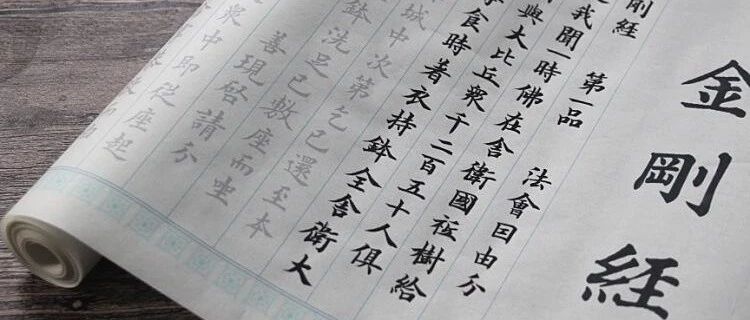 金剛經
剛經
第一品 法會因由分
我聞一時佛在舍衛國祇樹給
與大比丘衆千二百五十人俱
食時著衣持鉢全舍衛大
城中次第乞已還至本
鉢洗足已敷座而坐
善現啓請分
衆中即從座起